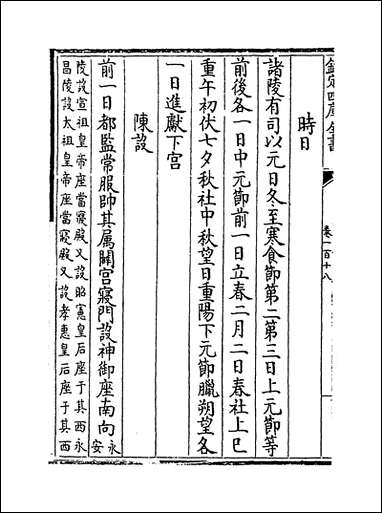 欽定四庫全書
卷一百十八
時日
諸陵有司以元日冬至寒食節第二第三日上元節等
前後各一日中元節前一日立春二月二日春社上巳
重午初伏七夕秋社中秋望日重陽下元節臘朔望各
一日進獻下宮
陳設
前一日都監常服帥其属開宮寢門設神御座南向永
安
陵設宣祖皇帝座當寢殿又設昭憲皇后座于其西永
昌陵設太祖皇帝座當寢殿又設孝惠皇后座于其西